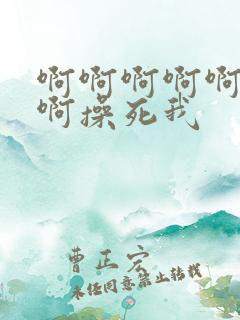 啊啊啊啊啊
啊操死我
曹正宏
未经同意禁止转载